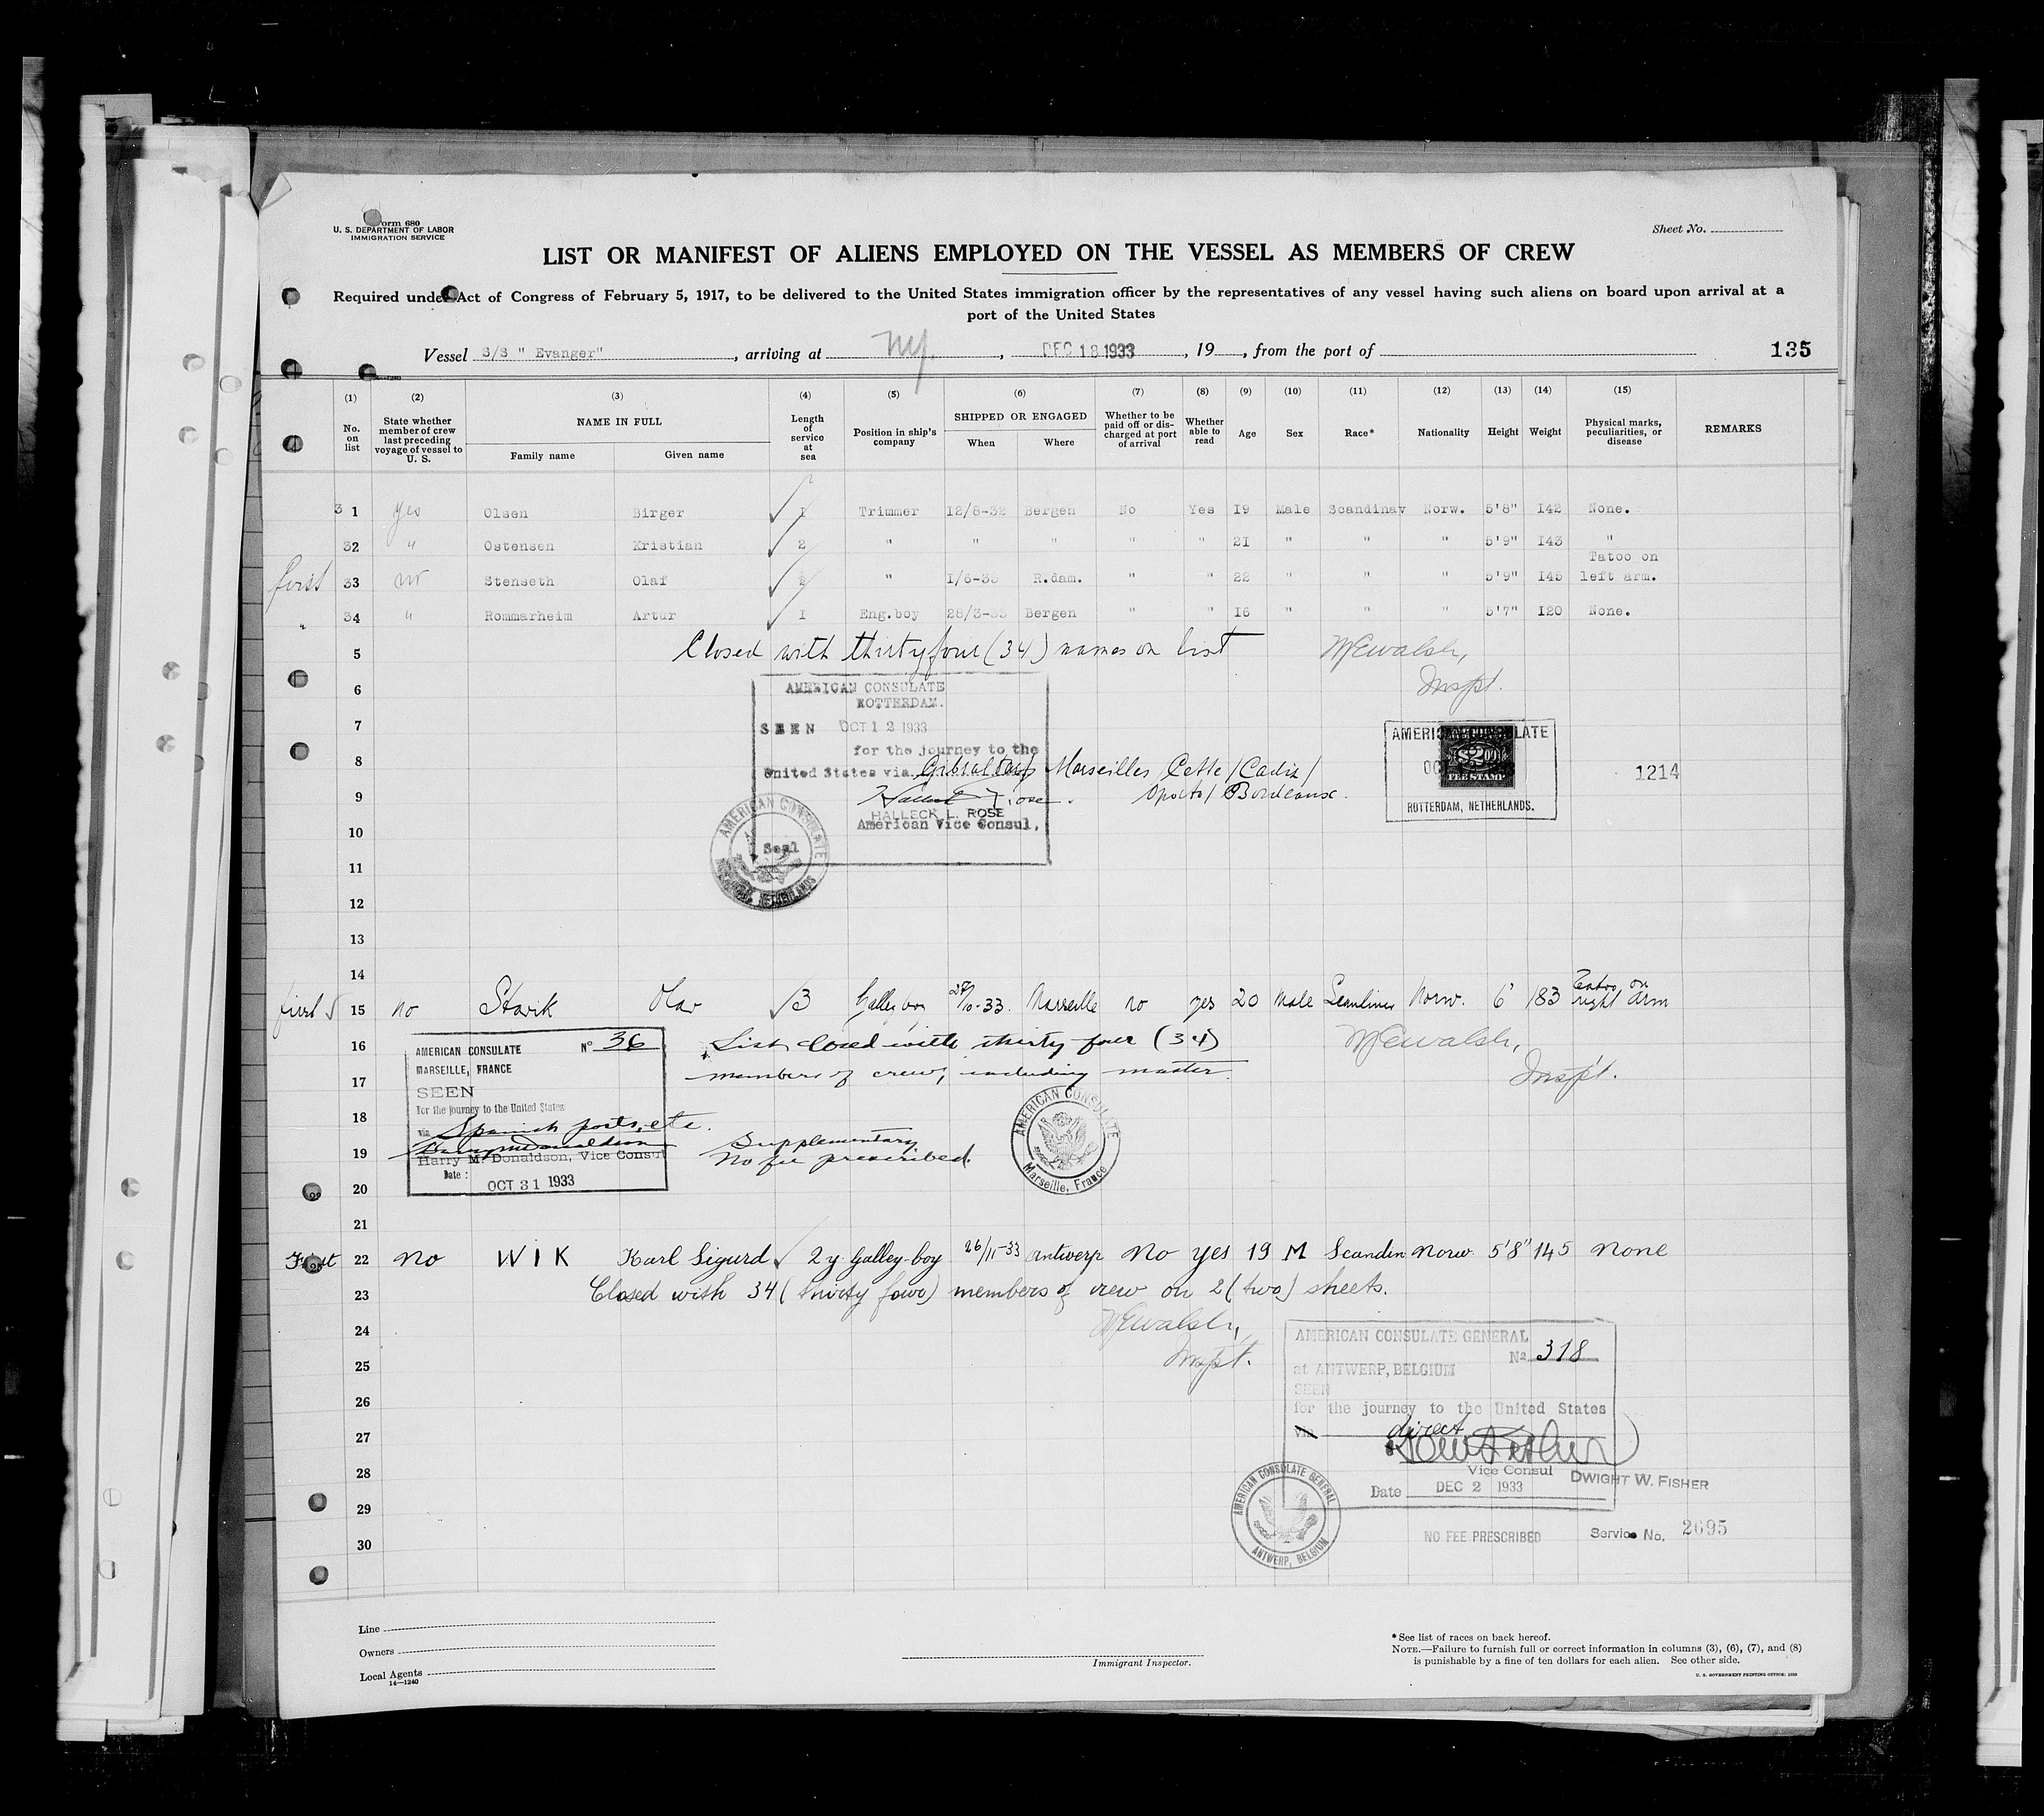 Form 680
U. S. DEPARTMENT OF LABOR
IMMIGRATION SERVICE
Sheet No.
LIST OR MANIFEST OF ALIENS EMPLOYED ON THE VESSEL AS MEMBERS OF CREW
Required under Act of Congress of February 5, 1917, to be delivered to the United States immigration officer by the representatives of any vessel having such aliens on board upon arrival at a
port of the United States
Vessel S/S " Evanger" , arriving at NY. , DEC 18 1933 , 19 , from the port of 135
(1) (2) (3) (4) (5) (6) (7) (8) (9) (10) (11) (12) (13) (14) (15)
No. on list State whether member of crew last preceding voyage of vessel to U. S. NAME IN FULL Family name Given name Length of service at sea Position in ship's company SHIPPED OR ENGAGED When Where Whether to be paid off or discharged at port of arrival Whether able to read Age Sex Race* Nationality Height Weight Physical marks, peculiarities, or disease REMARKS
31 Yes Olsen Birger 1 Trimmer 12/8-32 Bergen No Yes 19 Male Scandinav Norw. 5'8" 142 None.
32 " Ostensen Kristian 2 " " " " " 21 " " " 5'9" 143 "
first 33 no Stenseth Olaf " 1/6-33 R.dam. " " 22 " " " 5'9" 145 Tatoo on left arm.
" 34 " Rommarheim Artur 1 Eng.boy 28/3-33 Bergen " " 16 " " " 5'7" 120 None.
5 Closed with thirtyfour (34) names on list McWalsh,
6 Inspt.
AMERICAN CONSULATE
ROTTERDAM.
7 SEEN OCT 12 1933
for the journey to the
8 United States via Gibraltar/ Marseilles/Cette/Cadix/
9 Oporto/Bordeaux.
HALLECK L. ROSE
American Vice Consul,
AMERICAN CONSULATE
$2.00
FEE STAMP
ROTTERDAM, NETHERLANDS.
1214
AMERICAN CONSULATE
Seal
ROTTERDAM, NETHERLANDS
10
11
12
13
14
first 15 no Stavik Olav 3 Galley boy 28/10-33. Marseille no yes 20 Male Scandinav Norw. 6' 183 Tatoo on right arm
16 List closed with thirty four (34) McWalsh,
17 members of crew, including master. Inspt.
AMERICAN CONSULATE No 36
MARSEILLE, FRANCE
SEEN
For the journey to the United States
18 via Spanish ports, etc.
19 Harry M. Donaldson
Harry M. Donaldson, Vice Consul
Date: OCT 31 1933
Supplementary
No fee prescribed.
AMERICAN CONSULATE
Marseille, France
20
21
First 22 No WIK Karl Sigurd 2 y Galley-boy 26/11-33 Antwerp No yes 19 M Scandin Norw. 5'8" 145 none
23 Closed with 34 (thirty four) members of crew on 2 (two) sheets.
24 McWalsh,
25 Inspt.
AMERICAN CONSULATE GENERAL
No 318
at ANTWERP, BELGIUM
SEEN
26 for the journey to the United States
27 via direct
28 Vice Consul DWIGHT W. FISHER
Date DEC 2 1933
29
AMERICAN CONSULATE GENERAL
ANTWERP, BELGIUM
30 NO FEE PRESCRIBED Service No. 2695
Line
Owners
Local Agents
14—1240
Immigrant Inspector.
* See list of races on back hereof.
NOTE.—Failure to furnish full or correct information in columns (3), (6), (7), and (8)
is punishable by a fine of ten dollars for each alien. See other side.
U. S. GOVERNMENT PRINTING OFFICE: